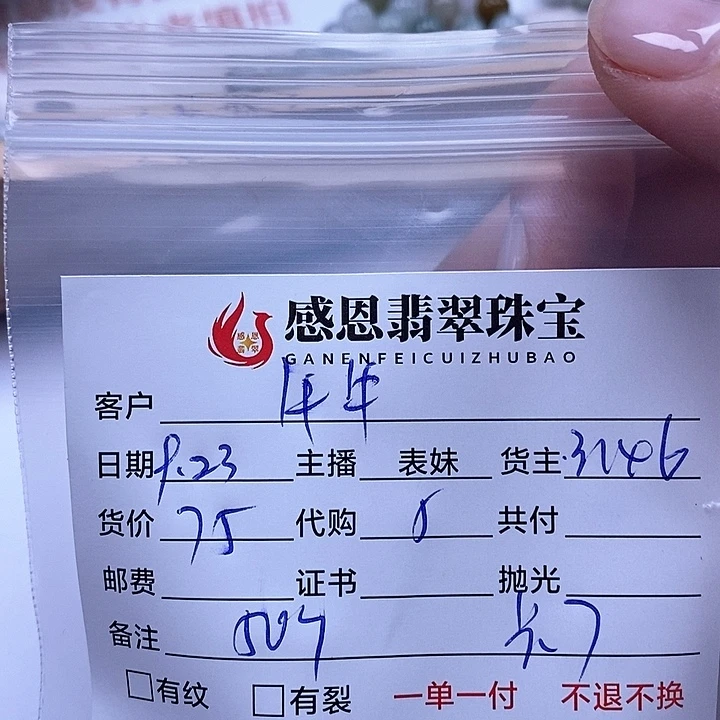 感恩翡翠珠宝
GANENFEICUIZHUBAO
客户 牛牛
日期 9.23 主播 表妹 货主 3246
货价 75 代购 8 共付
邮费 证书 抛光
备注
有纹 有裂 一单一付 不退不换